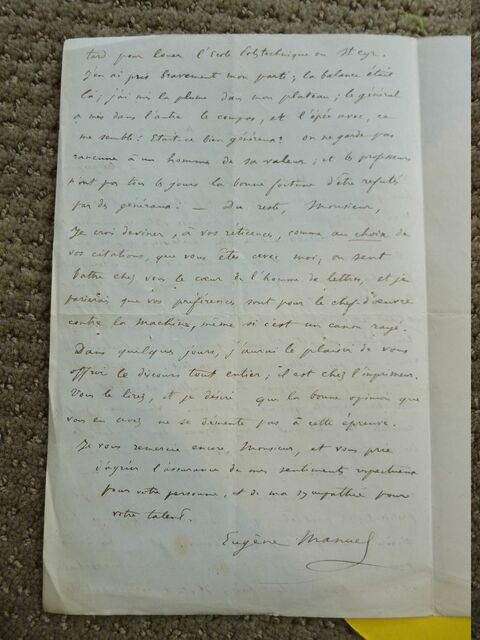 tard pour louer l'Ecole Polytechnique ou St Cyr.
J'en ai pris bravement mon parti; la balance était
là; j'ai mis la plume dans mon plateau; le général
a mis dans l'autre le compas, et l'épée avec, ce
me semble! Etait-ce bien généreux? on ne garde pas
rancune à un homme de sa valeur; et les professeurs
n'ont pas tous les jours la bonne fortune d'être réfutés
par des généraux! — Du reste, Monsieur,
Je crois deviner, à vos réticences, comme au choix de
vos citations, que vous êtes avec moi; on sent
battre chez vous le cœur de l'homme de lettres, et je
parierai que vos préférences sont pour le chef-d'œuvre
contre la machine, même si c'est un canon rayé.
Dans quelques jours, j'aurai le plaisir de vous
offrir le discours tout entier; il est chez l'imprimeur.
Vous le lirez, et je désire que la bonne opinion que
vous en avez ne se démente pas à cette épreuve.
Je vous remercie encore, Monsieur, et vous prie
d'agréer l'assurance de mes sentiments respectueux
pour votre personne, et de ma sympathie pour
votre talent.
Eugène Manuel